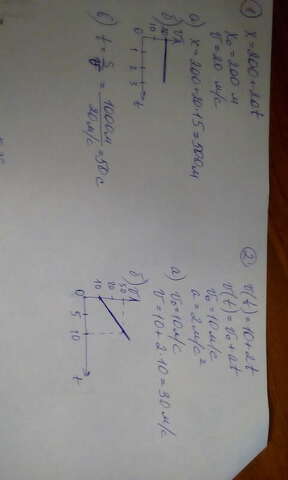 ①
x=200+20t
x₀=200 м
v=20 м/с
а) x=200+20·15=500м
б)
vx
20
10
0 1 2 3 t
в) t=S/v=1000м/20м/с=50 с
②
v(t)=10+2t
v(t)=v₀+at
v₀=10м/с
a=2 м/с²
а) v₀=10м/с
v=10+2·10=30 м/с
б)
vx
30
20
10
0 5 10 t